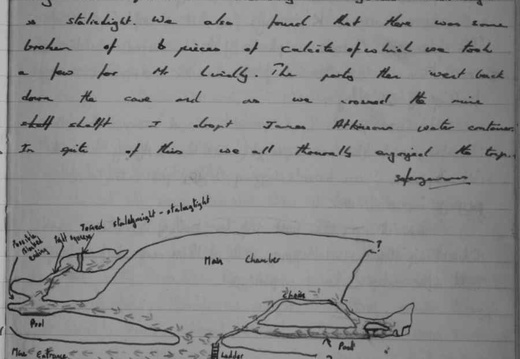 is stalatight. We also found that there was some
broken of 6 pieces of calcite of which we took
a few for Mr Lvially. The party then went back
down the cave and as we crossed the mine
shaft shalft I dropt James Atkinsons water container.
In spite of this we all thourally enjoyed the trip.
Joined stalaymight - stalaytight
Possible blocked ending
Main Chamber
?
Pool
Main Entrance
Ladder